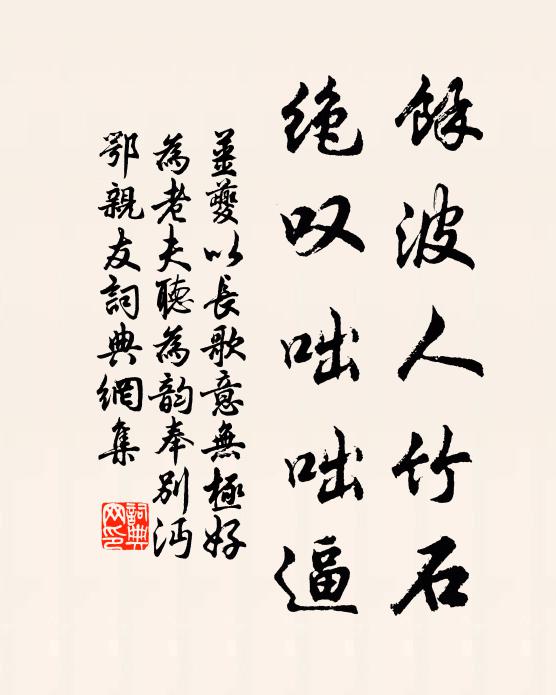 餘波人竹石
绝叹咄咄逼
姜夔以長歌意無極好
為老夫聽為韵奉別沔
鄂親友詞典網集
詞典
网印